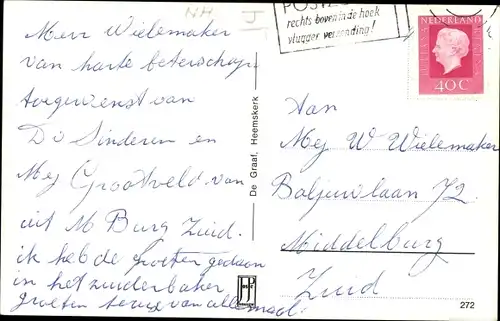 NH
J
POSTZEGEL
rechts boven in de hoek
vlugger verzending!
NEDERLAND
40 C
Mevr Wielemaker
van harte beterschap
toegewenst van
Ds Sinderen en
Mej Grootveld van
uit M Burg Zuid.
ik heb de groeten gedaan
in het zuiderbaken
groeten terug van allemaal.
De Graaf, Heemskerk
JosPé
Aan
Mej W Wielemaker
Baljuwlaan 72
Middelburg
Zuid
272